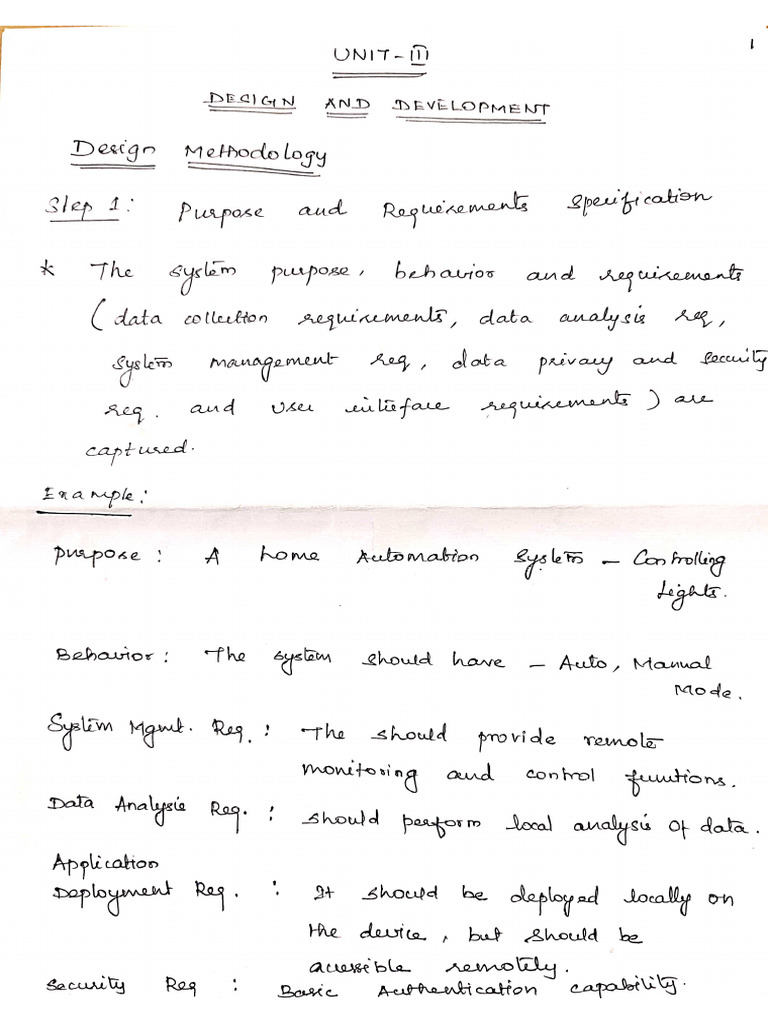 1
UNIT-III
DESIGN AND DEVELOPMENT
Design Methodology
Step 1: Purpose and Requirements Specification
* The system purpose, behavior and requirements
(data collection requirements, data analysis req,
system management req, data privacy and security
req. and user interface requirements) are
captured.
Example:
Purpose: A home Automation System - Controlling
Lights.
Behavior: The system should have - Auto, Manual
Mode.
System Mgmt. Req.: The should provide remote
monitoring and control functions.
Data Analysis Req.: Should perform local analysis of data.
Application
Deployment Req. : It should be deployed locally on
the device, but should be
acessible remotely.
Security Req : Basic Authentication capability.